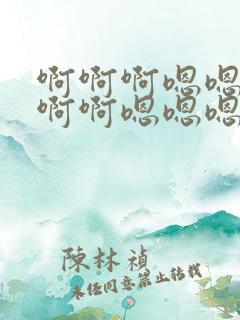 啊啊啊嗯嗯
啊啊嗯嗯嗯
陳林禎
未经同意禁止转载